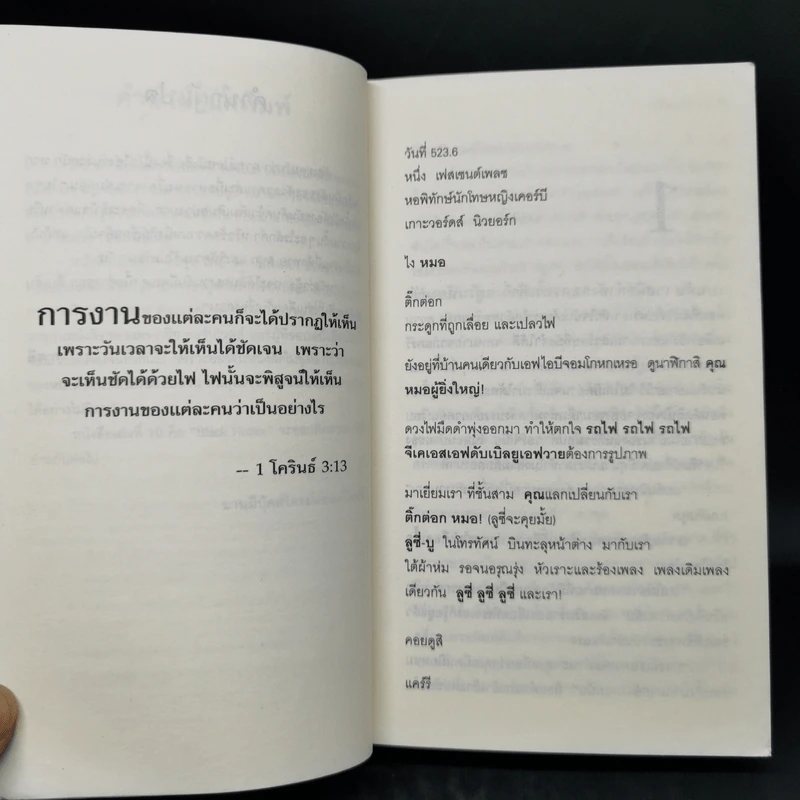 การงานของแต่ละคนก็จะได้ปรากฏให้เห็น
เพราะวันเวลาจะให้เห็นได้ชัดเจน เพราะว่า
จะเห็นชัดได้ด้วยไฟ ไฟนั้นจะพิสูจน์ให้เห็น
การงานของแต่ละคนว่าเป็นอย่างไร
-- 1 โครินธ์ 3:13
วันที่ 523.6
หนึ่ง เฟสเซนต์เพลซ
หอพิทักษ์นักโทษหญิงเคอร์บี
เกาะวอร์ดส์ นิวยอร์ก
ไง หมอ
ติ๊กต่อก
กระดูกที่ถูกเลื่อย และเปลวไฟ
ยังอยู่ที่บ้านคนเดียวกับเอฟไอบีจอมโกหกเหรอ ดูนาฬิกาสิ คุณ
หมอผู้ยิ่งใหญ่!
ดวงไฟมืดดำพุ่งออกมา ทำให้ตกใจ รถไฟ รถไฟ รถไฟ
จีเคเอสเอฟดับเบิลยูเอฟวายต้องการรูปภาพ
มาเยี่ยมเรา ที่ชั้นสาม คุณแลกเปลี่ยนกับเรา
ติ๊กต่อก หมอ! (ลูซี่จะคุยมั้ย)
ลูซี่-บู ในโทรทัศน์ บินทะลุหน้าต่าง มากับเรา
ใต้ผ้าห่ม รอจนอรุณรุ่ง หัวเราะและร้องเพลง เพลงเดิมเพลง
เดียวกัน ลูซี่ ลูซี่ ลูซี่ และเรา!
คอยดูสิ
แคร์รี